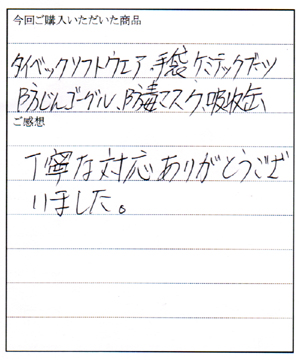 今回ご購入いただいた商品
タイベックソフトウエア、手袋、ケミテックブーツ
防じんゴーグル、防毒マスク、吸収缶、
ご感想
丁寧な対応ありがとうござ
いました。